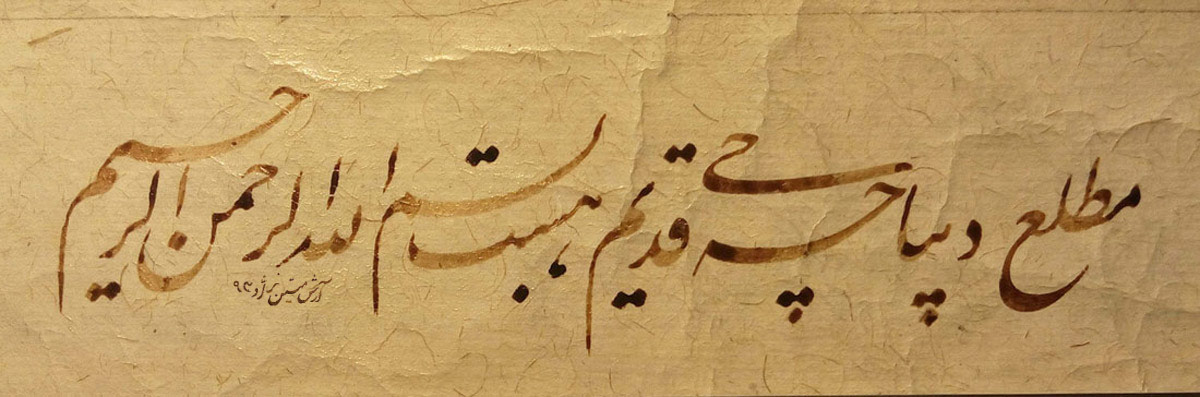 مطلع دیباچه حی قدیم هست بسم الله الرحمن الرحیم
آرش متین نژاد ۹۳